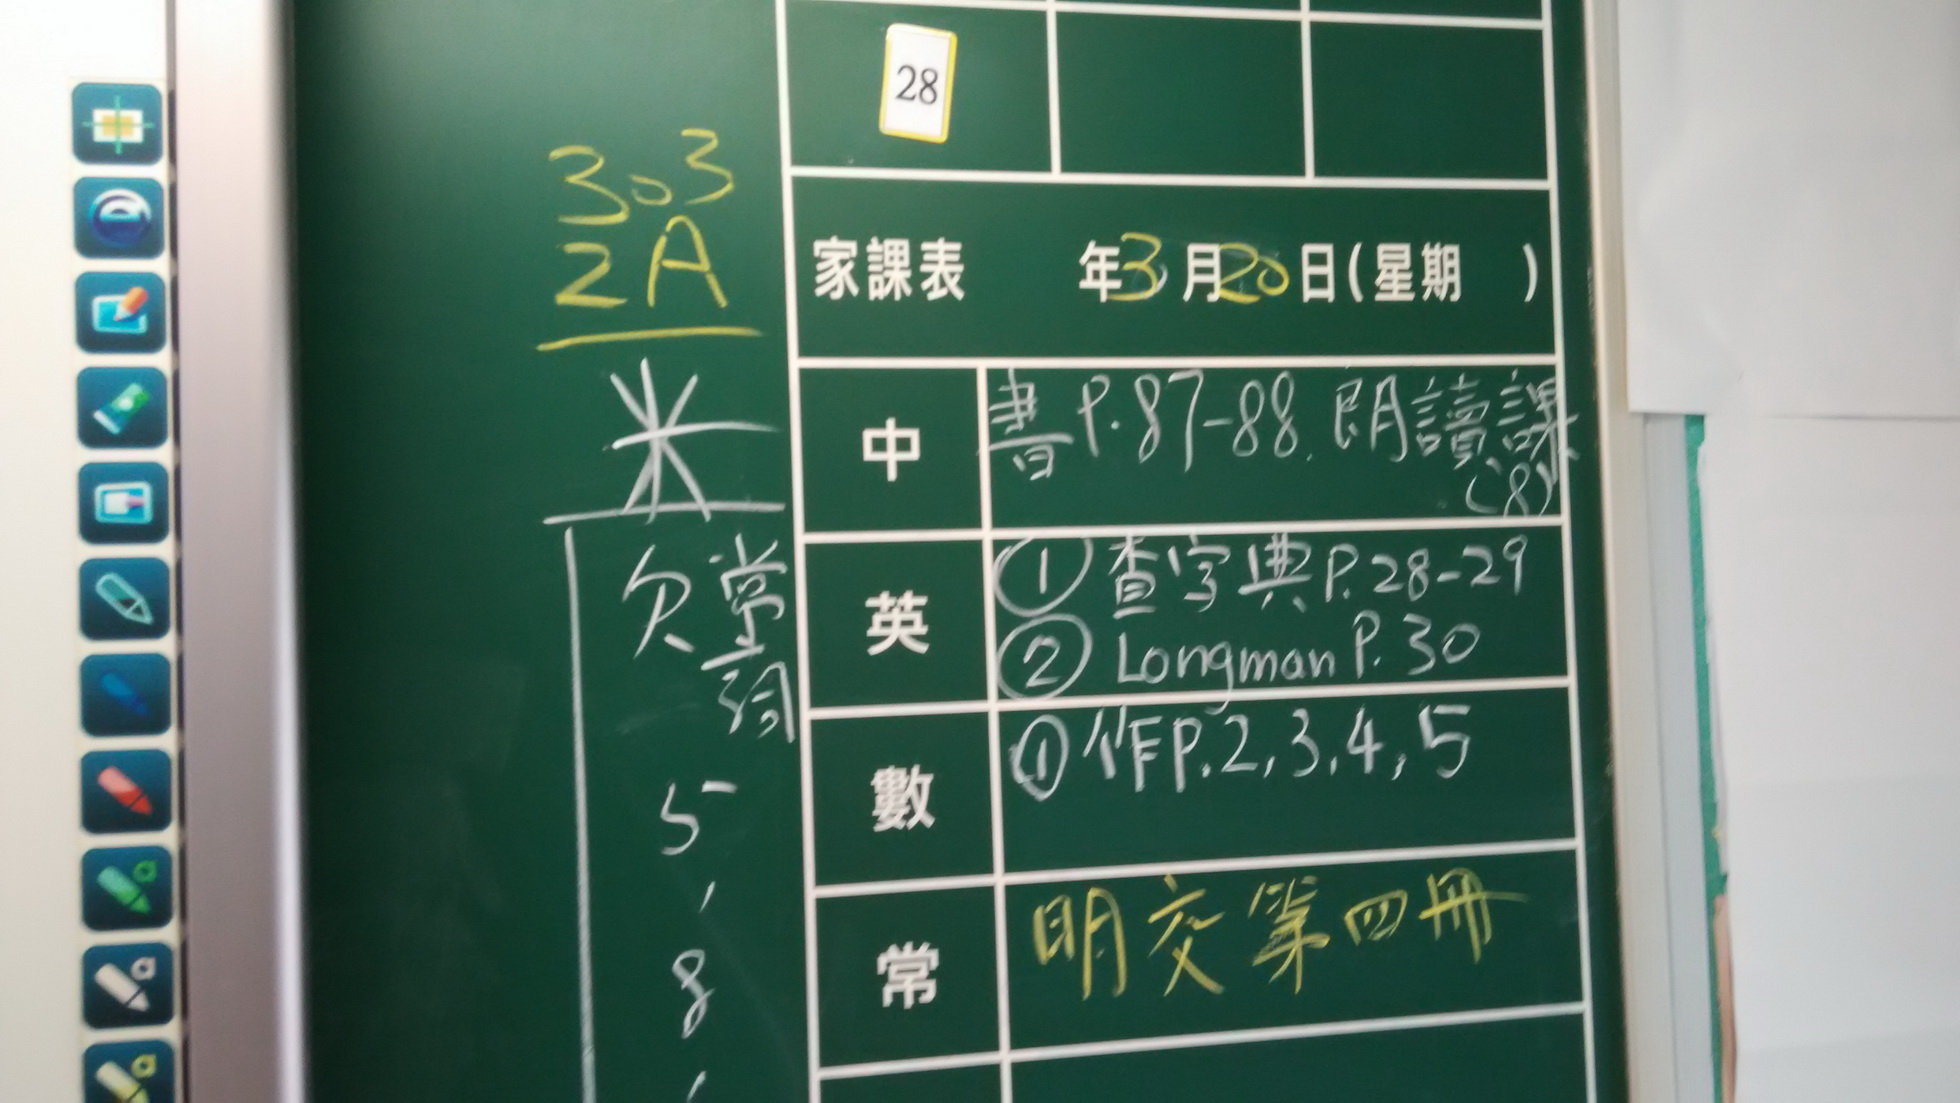 28
303
2A
家課表 年3月20日(星期 )
中 書P.87-88. 朗讀課
(8)
英 ① 查字典P.28-29
② Longman P.30
數 ① 作P.2,3,4,5
常 明交第四冊
米
欠常
詞
5
,
8
,